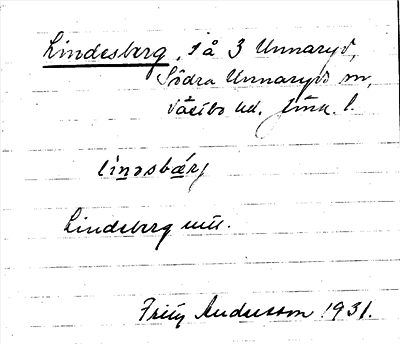 Lindesberg, 1 å 3 Unnaryd,
Södra Unnaryds sn,
Västbo hd. Jönk. l.
li̱nəsbær̨j
Lindsberg utt.
Fritz Andersson 1931.